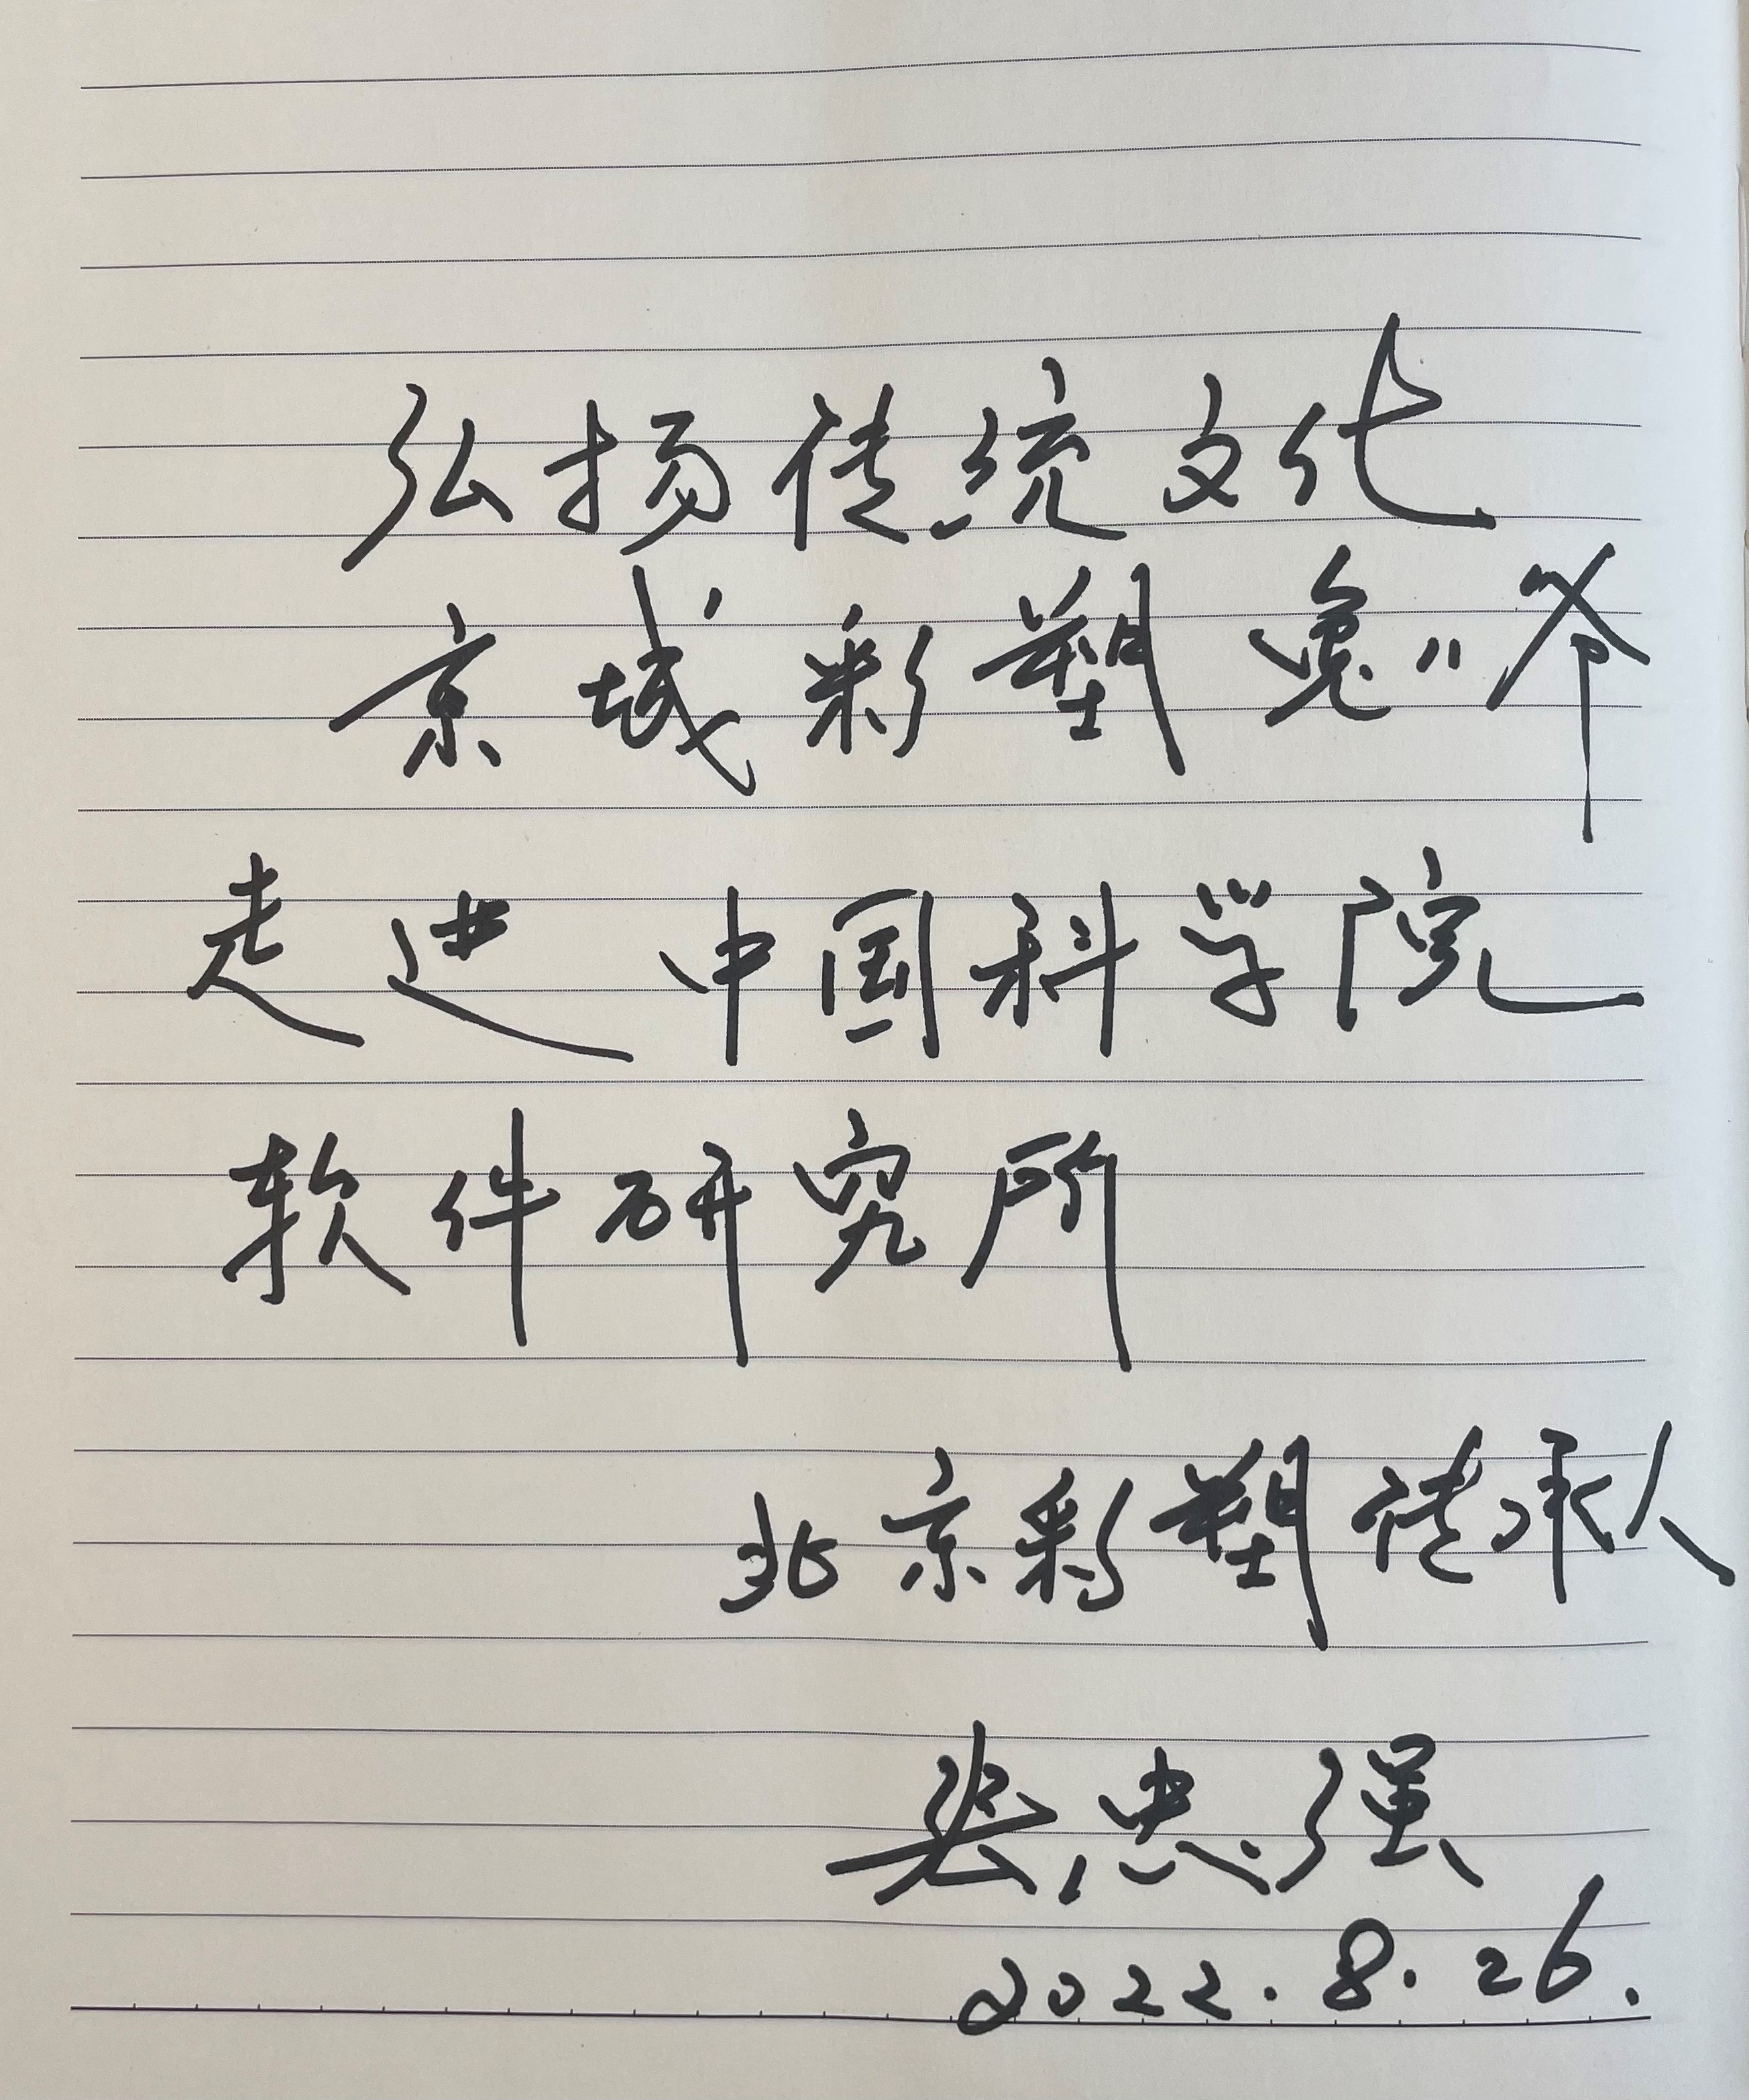 弘扬传统文化
京城彩塑兔儿爷
走进中国科学院
软件研究所
北京彩塑传承人
张忠强
2022.8.26.